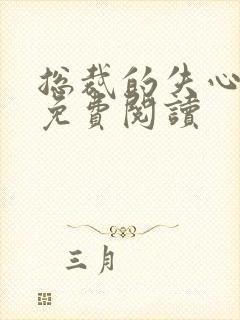 总裁的失心
免費閱讀
三月